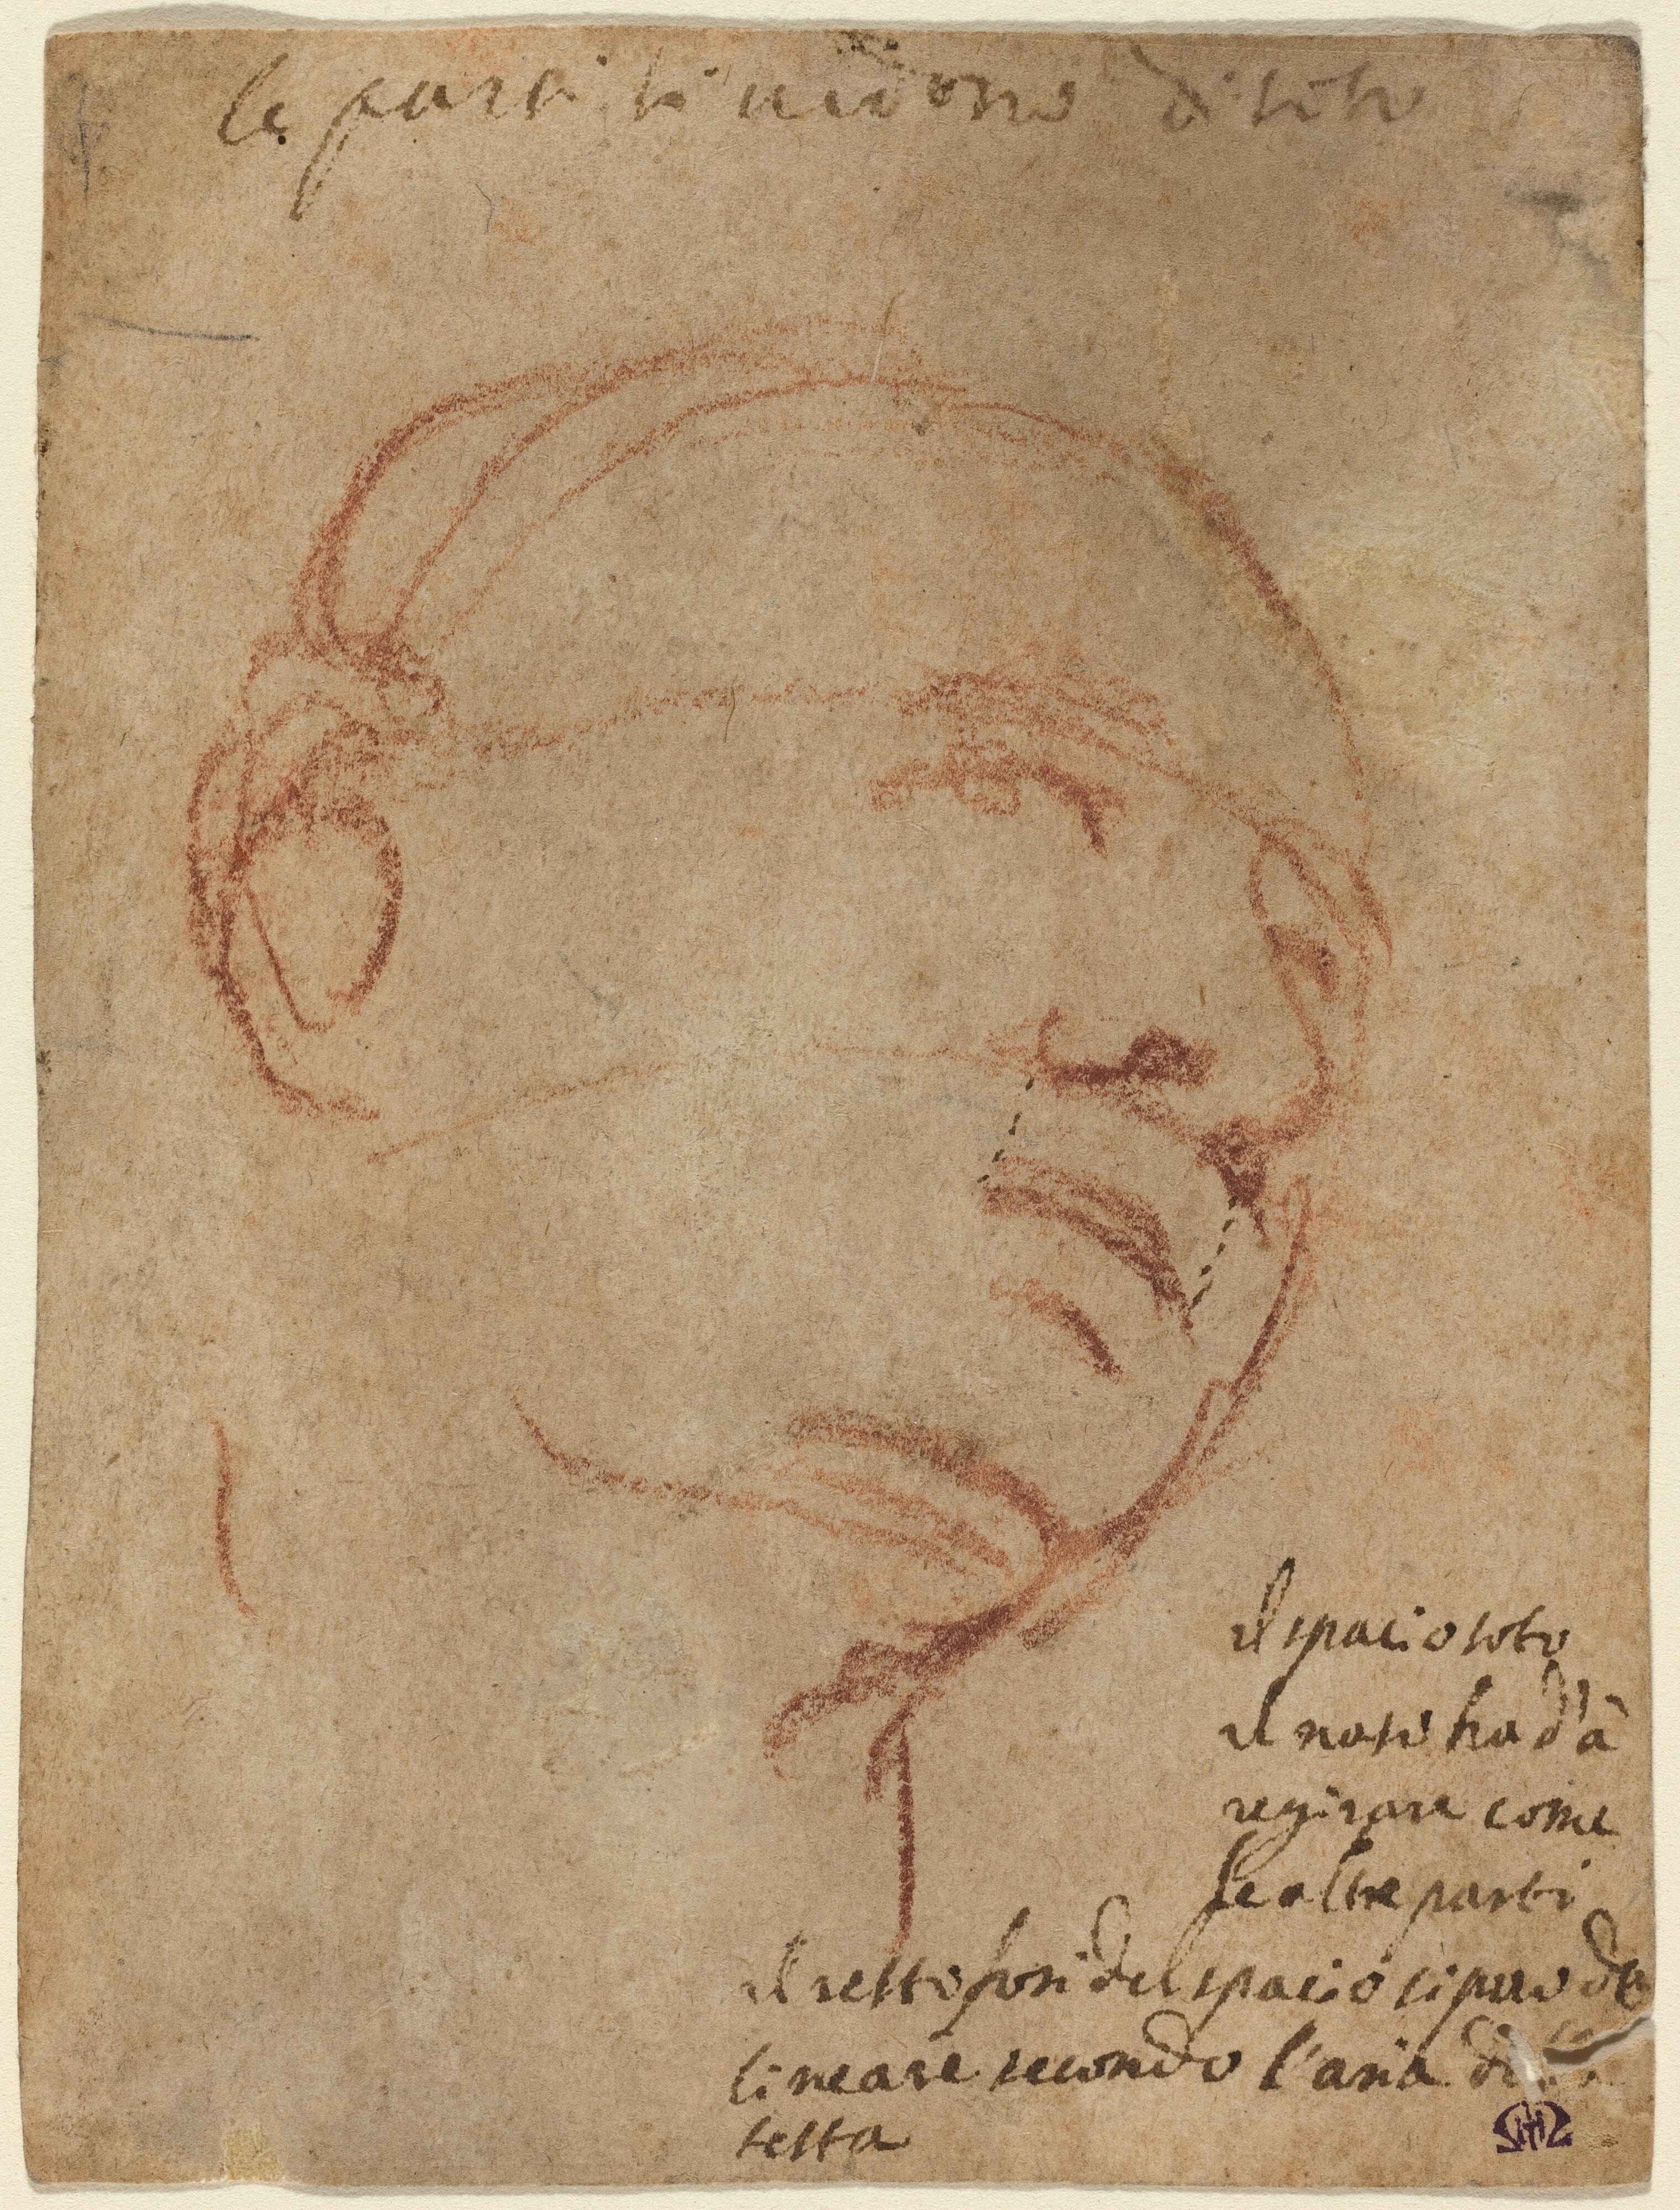 le parti si uedono di soto
il spacio soto
il naso ha d'à
regirare come
le altre parti
il resto poi del spacio si puo de
lineare secondo l'aria di
testa